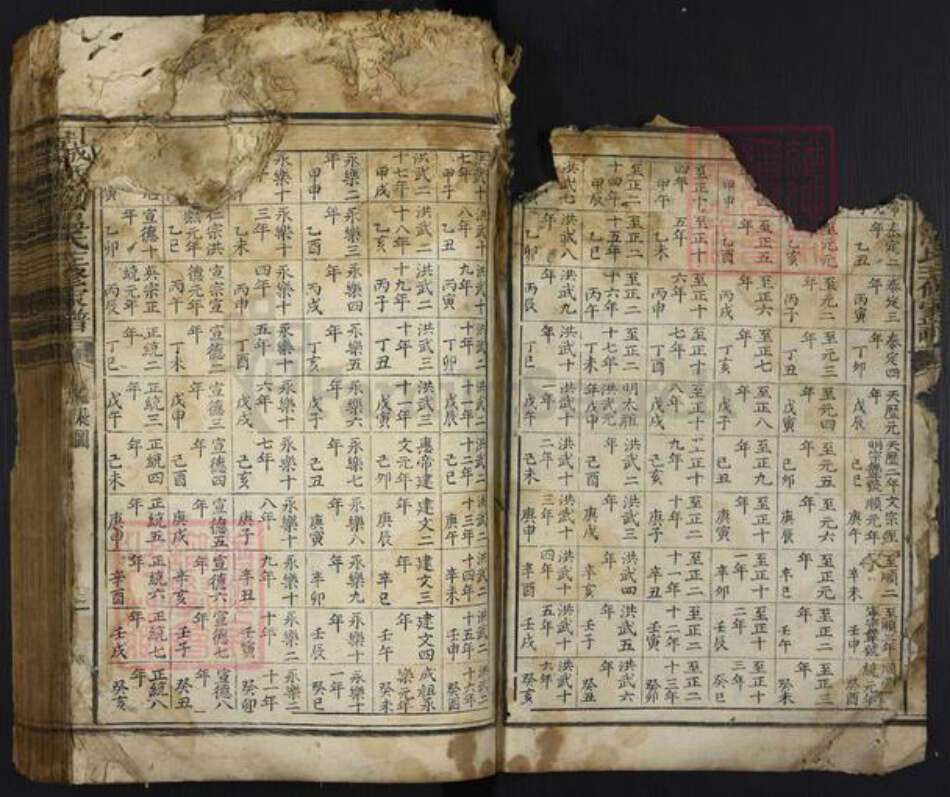 泰定二年 乙丑
泰定三年 丙寅
泰定四年 丁卯
天歷元年 戊辰
天歷二年 明宗 己巳
文宗至順元年 庚午
至順二年 辛未
至順三年 寧宗 壬申
順帝元統元年 癸酉
至元元年 乙亥
至元二年 丙子
至元三年 丁丑
至元四年 戊寅
至元五年 己卯
至元六年 庚辰
至正元年 辛巳
至正二年 壬午
至正三年 癸未
甲申
至正五年 乙酉
至正六年 丙戌
至正七年 丁亥
至正八年 戊子
至正九年 己丑
至正十年 庚寅
至正十一年 辛卯
至正十二年 壬辰
至正十三年 癸巳
至正十四年 甲午
至正十五年 乙未
至正十六年 丙申
至正十七年 丁酉
至正十八年 戊戌
至正十九年 己亥
至正二十年 庚子
至正二十一年 辛丑
至正二十二年 壬寅
至正二十三年 癸卯
至正二十四年 甲辰
至正二十五年 乙巳
至正二十六年 丙午
至正二十七年 丁未
明太祖洪武元年戊申
洪武二年 己酉
洪武三年 庚戌
洪武四年 辛亥
洪武五年 壬子
洪武六年 癸丑
洪武七
洪武八年 乙卯
洪武九年 丙辰
洪武十年 丁巳
洪武十一年 戊午
洪武十二年 己未
洪武十三年 庚申
洪武十四年 辛酉
洪武十五年 壬戌
洪武十六年 癸亥
洪武十七年 甲子
洪武十八年 乙丑
洪武十九年 丙寅
洪武二十年 丁卯
洪武二十一年 戊辰
洪武二十二年 己巳
洪武二十三年 庚午
洪武二十四年 辛未
洪武二十五年 壬申
洪武二十六年 癸酉
洪武二十七年 甲戌
洪武二十八年 乙亥
洪武二十九年 丙子
洪武三十年 丁丑
洪武三十一年 戊寅
惠帝建文元年 己卯
建文二年 庚辰
建文三年 辛巳
建文四年 壬午
成祖永樂元年 癸未
永樂二年 甲申
永樂三年 乙酉
永樂四年 丙戌
永樂五年 丁亥
永樂六年 戊子
永樂七年 己丑
永樂八年 庚寅
永樂九年 辛卯
永樂十年 壬辰
永樂十一年 癸巳
永樂十
永樂十三年 乙未
永樂十四年 丙申
永樂十五年 丁酉
永樂十六年 戊戌
永樂十七年 己亥
永樂十八年 庚子
永樂十九年 辛丑
永樂二十年 壬寅
永樂二十一年 癸卯
仁宗洪熙元年 乙巳
宣宗宣德元年 丙午
宣德二年 丁未
宣德三年 戊申
宣德四年 己酉
宣德五年 庚戌
宣德六年 辛亥
宣德七年 壬子
宣德八年 癸丑
寅
宣德十年 乙卯
英宗正統元年 丙辰
正統二年 丁巳
正統三年 戊午
正統四年 己未
正統五年 庚申
正統六年 辛酉
正統七年 壬戌
正統八年 癸亥
氏三修家譜